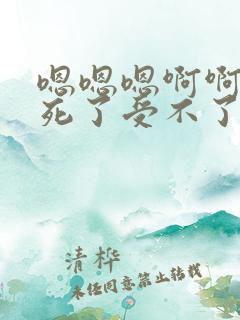 嗯嗯嗯啊啊
死了受不了
清桦
未经同意禁止转载